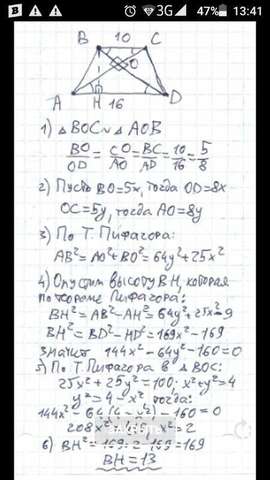 3G 47% 13:41
B 10 C
O
A H 16 D
1) △BOC ~ △AOB
BO/OD = CO/AO = BC/AD = 10/16 = 5/8
2) Пусть BO=5x, тогда OD=8x
OC=5y, тогда AO=8y
3) По Т. Пифагора:
AB²=AO²+BO²=64y²+25x²
4) Опустим высоту BH, которая
по теореме Пифагора:
BH²=AB²-AH²=64y²+25x²-9
BH²=BD²-HD²=169x²-169
Значит 144x²-64y²-160=0
5) По Т. Пифагора в △BOC:
25x²+25y²=100; x²+y²=4
y²=4-x², тогда:
144x²-64(4-x²)-160=0
208x² x²=2
6) BH²=169·2-169=169
BH=13